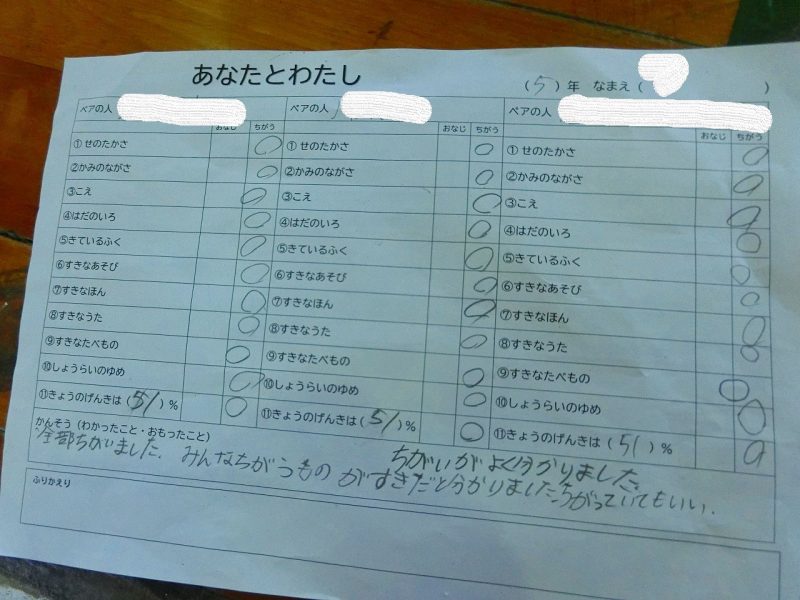 あなたとわたし
(5)年 なまえ( )
ペアの人
おなじ ちがう
①せのたかさ
②かみのながさ
③こえ
④はだのいろ
⑤きているふく
⑥すきなあそび
⑦すきなほん
⑧すきなうた
⑨すきなたべもの
⑩しょうらいのゆめ
⑪きょうのげんきは(51)%
ペアの人
おなじ ちがう
①せのたかさ
②かみのながさ
③こえ
④はだのいろ
⑤きているふく
⑥すきなあそび
⑦すきなほん
⑧すきなうた
⑨すきなたべもの
⑩しょうらいのゆめ
⑪きょうのげんきは(51)%
ペアの人
おなじ ちがう
①せのたかさ
②かみのながさ
③こえ
④はだのいろ
⑤きているふく
⑥すきなあそび
⑦すきなほん
⑧すきなうた
⑨すきなたべもの
⑩しょうらいのゆめ
⑪きょうのげんきは(51)%
かんそう(わかったこと・おもったこと)
ちがいがよく分かりました。
全部ちがいました。みんなちがうものがすきだと分かりました。ちがっていてもいい。
ふりかえり